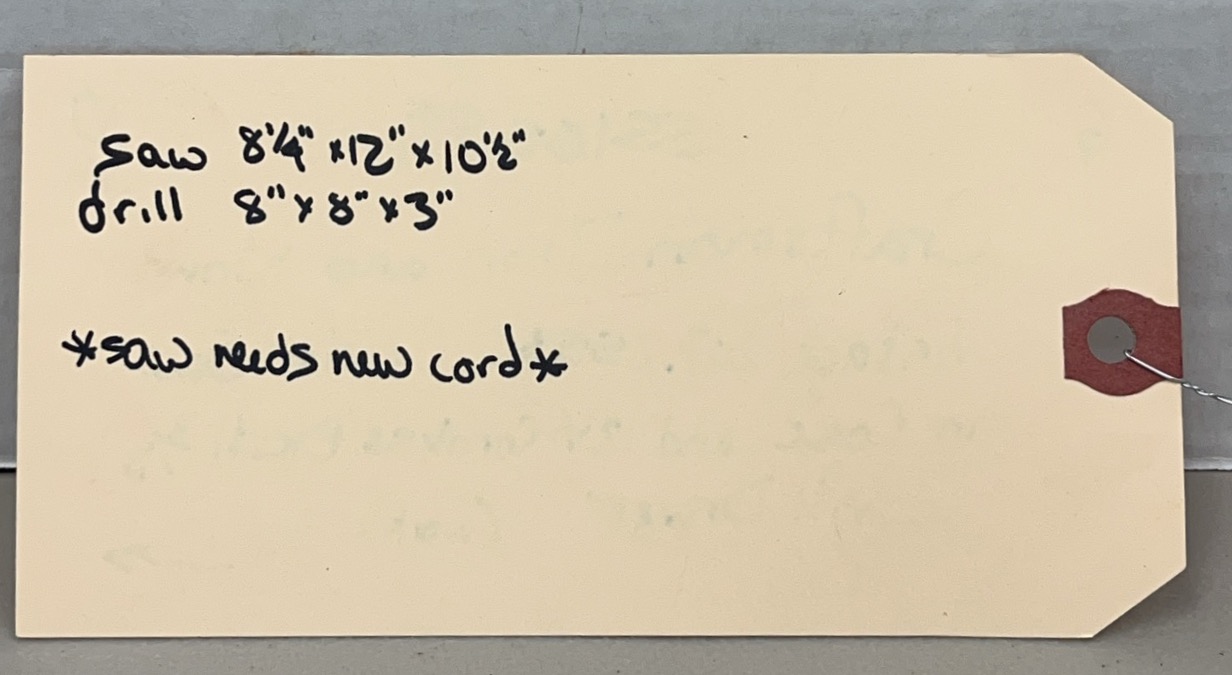 saw 8 1/4" x 12" x 10 1/2"
drill 8" x 8" x 3"
*saw needs new cord*